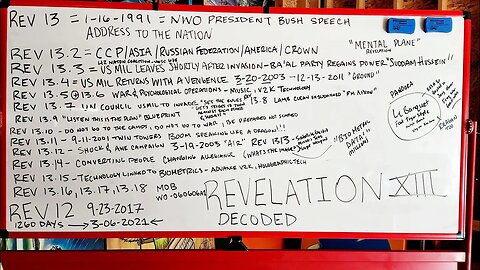 REV 13 = 1-16-1991 = NWO PRESIDENT BUSH SPEECH
ADDRESS TO THE NATION
REV 13.2 = CCP/ASIA/RUSSIAN FEDERATION/AMERICA/CROWN
"MENTAL PLANE"
REVELATION
REV 13.3 = US MIL LEAVES SHORTLY AFTER INVASION - BA'AL PARTY REGAINS POWER "SUDDAM HUSSEIN"
REV 13.4 = US MIL RETURNS WITH A VENGENCE 3-20-2003 - 12-13-2011 "GROUND"
REV 13.5 13.6 WAR & PSYCHOLOGICAL OPERATIONS - MUSIC, V2K TECHNOLOGY
REV 13.7 UN COUNCIL USMIL TO INVADE "SET THE RULES
13.8 LAMB CLEAN BLOODLINES
REV 13.9 "LISTEN THIS IS THE PLAN" BLUEPRINT
REV 13.10 - DO NOT GO TO THE CAMPS, DO NOT GO TO WAR, BE PREPARED NOT SCARED
REV 13.11 - 9-11-2001 TWIN TOWERS BOOM SPEAKING LIKE A DRAGON!!
REV 13.12 - SHOCK & AWE CAMPAIGN 3-19-2003 "AIR"
REV 13.13
REV 13.14 - CONVERTING PEOPLE CHANGING ALLEGIANCE
REV 13.15 - TECHNOLOGY LINKED TO BIOMETRICS - ADVANCE V2K, HOLOGRAPHIC TECH
REV 13.16, 13.17, 13.18
MOB
WO-060606A1
"BIO METRIC
DATA"
PANDORA
REV 12 9-23-2017
1260 DAYS → 3-06-2021
REVELATION XIII
DECODED